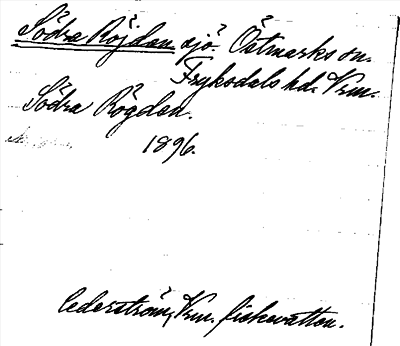 Södra Röjdan sjö. Östmarks sn.
Fryksdals hd. Vrm.
Södra Rögden.
1896.
Cederström, Vrm. fiskevatten.